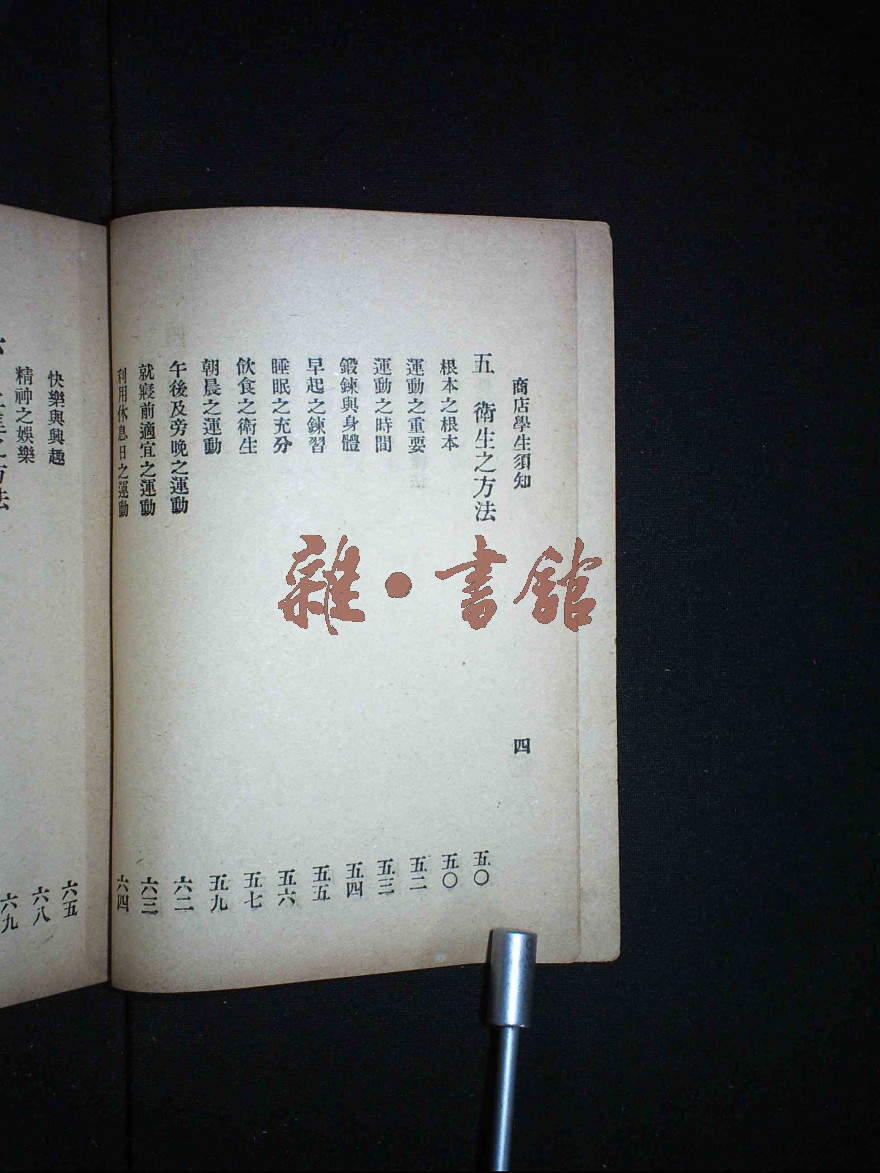 商店學生須知
四
五 衛生之方法
五〇
根本之根本
五〇
運動之重要
五二
運動之時間
五三
鍛鍊與身體
五四
早起之鍊習
五五
睡眠之充分
五六
飲食之衛生
五七
朝晨之運動
五九
午後及旁晚之運動
六二
就寢前適宜之運動
六三
利用休息日之運動
六四
快樂與興趣
六五
精神之娛樂
六八
之方法
六九
雜·書館